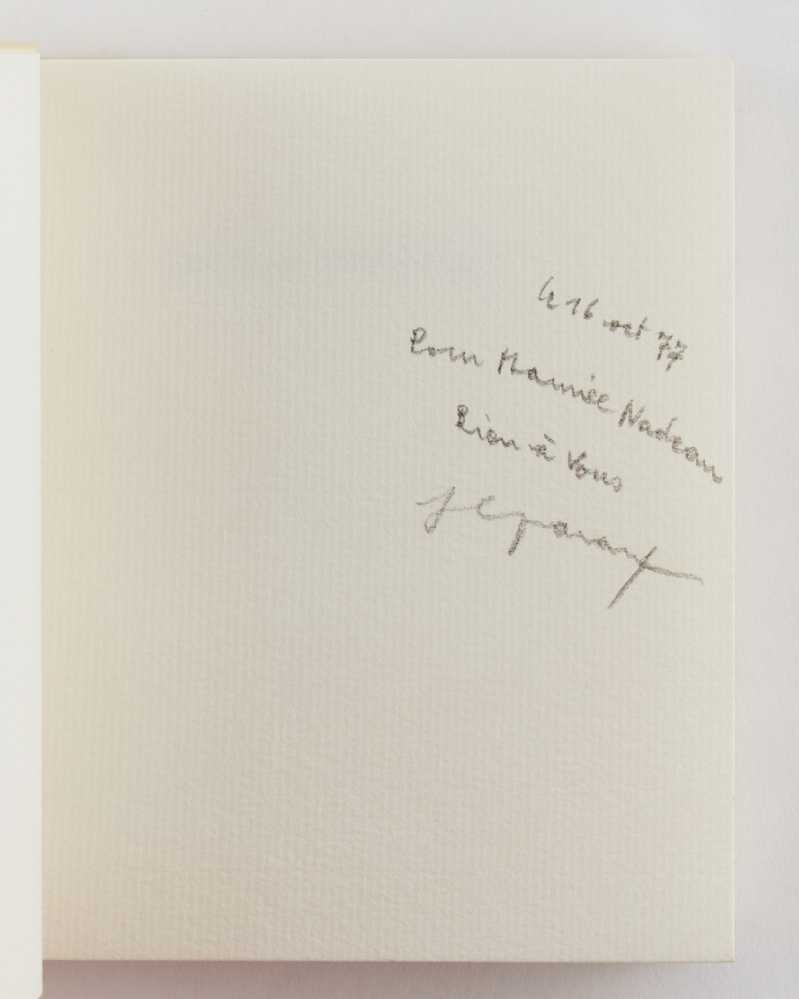 le 16 oct 77
Pour Maurice Nadeau
Bien à Vous
JLParant